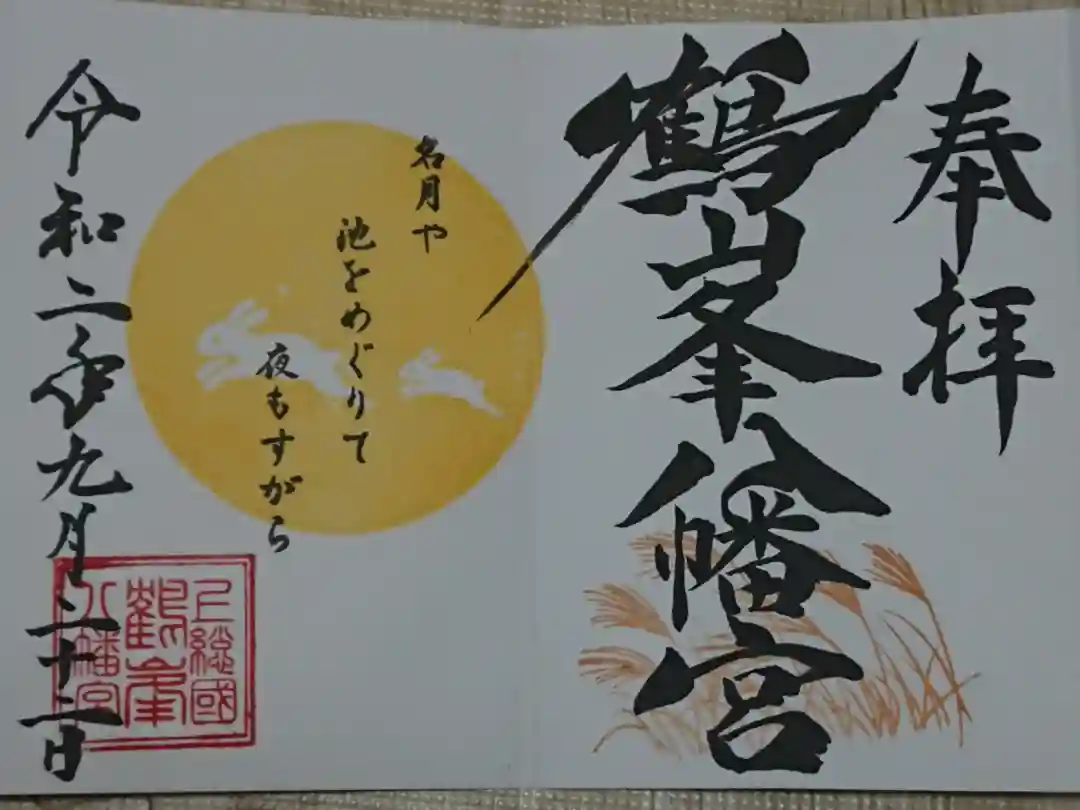 奉拝
鶴峯八幡宮
名月や
池をめぐりて
夜もすがら
上総國
鶴峯
八幡宮
令和二年九月二十二日